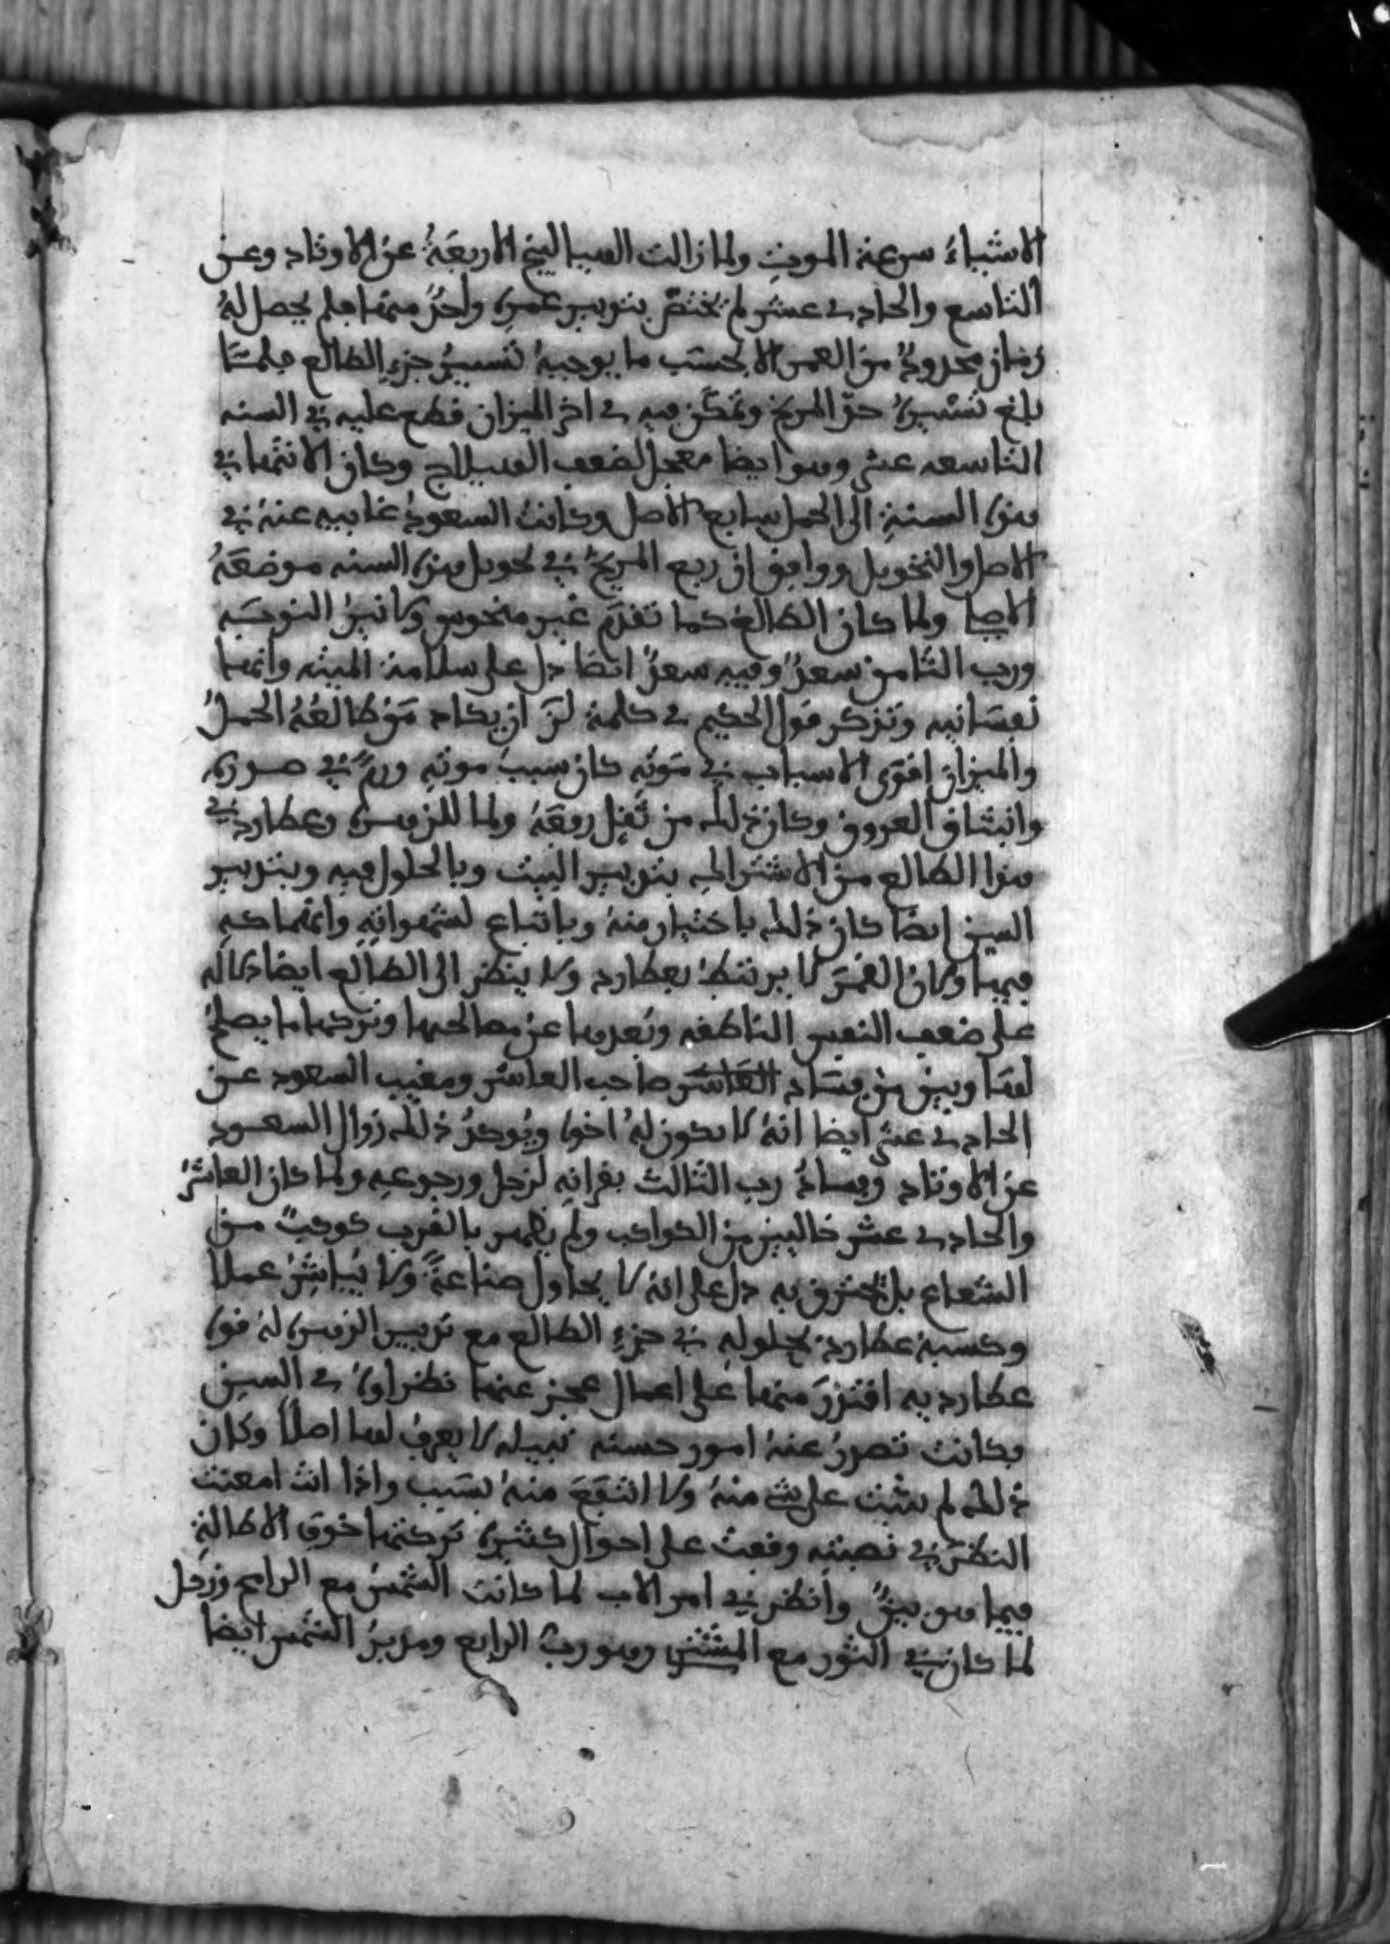 الاشياء سرعة الموت ولما زالت الهياليج الاربعة عن الاوتاد وعن
التاسع والحادى عشر لم تختص بتدبير عمره واحد منها فلم يحصل له
زمان محدود من العمر الا بحسب ما يوجبه تسيير جزء الطالع فلما
بلغ تسييره حد المريخ وتمكن فيه فى اخر الميزان قطع عليه في السنه
التاسعه عشر وهو ايضا معجل لضعف الهيلاج وكان الانتها في
هذه السنة الى الحمل سابع الاصل وكانت السعود غايبه عنه في
الاصل والتحويل ووافق ان ربع المريخ في تحويل هذه السنه موضعه
الاصلى ولما كان الطالع كما تقدم غير منحوس وكانت
ورب الثامن سعد وفيه سعد ايضا دل على سلامة الميته وانها
نفسانيه وتذكر قول الحكيم فى كلمة لن ان يكاد من طالعه الحمل
والميزان اقوى الاسباب في موته كان سبب موته ورم في صدره
وانبثاق العروق وكان ذلك من ثقل رفعه ولما للزهره وعطارد في
هذا الطالع من الاشتراك بتدبير البيت وبالحلول فيه وبتدبير
السفن ايضا كان ذلك باختيار منه وباتباع لشهواته وانهماكه
فيها وكان القمر لا يرتبط بعطارد ولا ينظر الى الطالع ايضا دلاله
على ضعف النفس الناطقه وبعدها عن مصالحها وتركها ما يصلح
لها وبين من فساد العاشر صاحب العاشر ومغيب السعود عن
الحادى عشر ايضا انه لا يكون له اخوه ويوكد ذلك زوال السعود
عن الاوتاد وفساد رب الثالث بقرانه لزحل ورجوعه ولما كان العاشر
والحادى عشر خاليين من الكواكب ولم يظهر بالقرب كوكب من
الشعاع بل تحترق به دل على انه لا يحاول صناعة ولا يباشر عملا
وكسبة عطارد بحلوله في جزء الطالع مع تدبير الزهره له قوه
عطارديه اقتدر منها على اعمال عجز عنها نظراوه فى السن
فكانت تصدر عنه امور حسنه نبيله لا يعرف لها اصلا وكان
ذلك لم يثبت على شى منه ولا انتفع منه بسبب واذا انت امعنت
النظر في نصبته وقعت على احوال كثيره تركتها خوف الاطالة
فيما هو بين وانظر في امر الاب لما كانت الشمس مع الرابع وزحل
لما كان في الثور مع المشترى وهو رب الرابع ومدبر الشمس ايضا